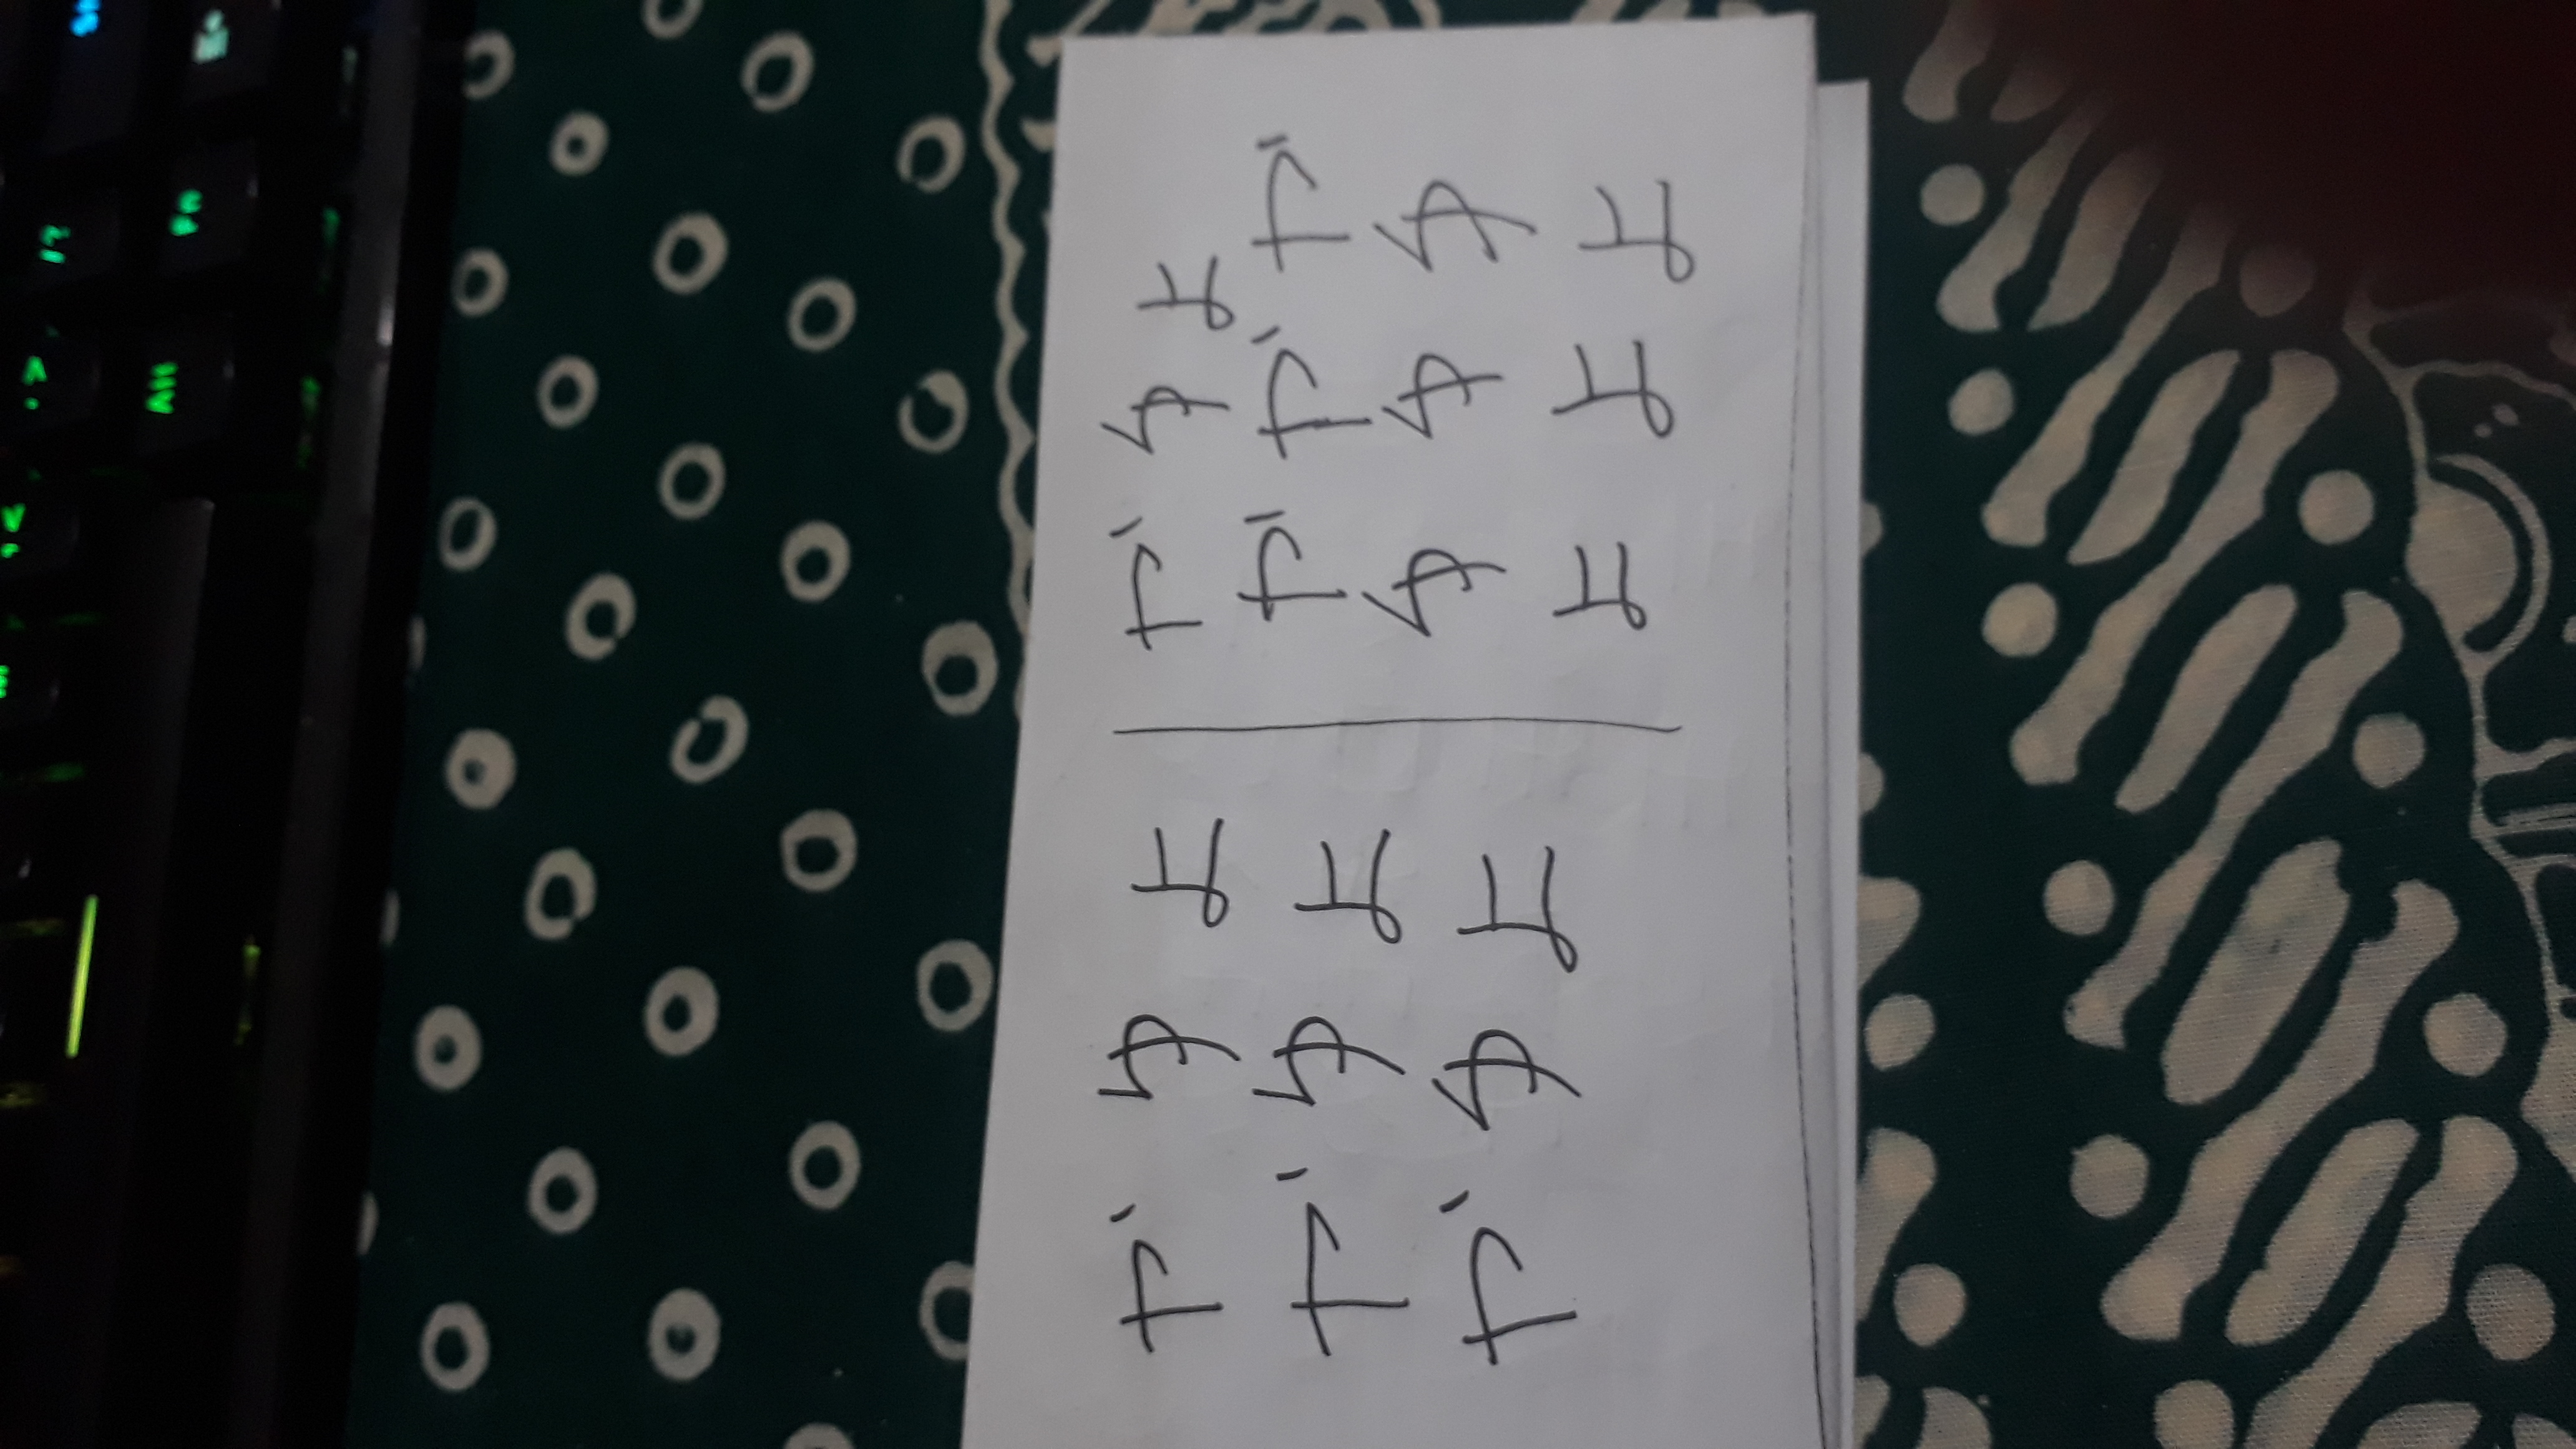 M , < . > / ?
Alt Fn
や ゆ よ
や ゆ よ
や ゆ よ
や ゆ よ
や や や
ゆ ゆ ゆ
よ よ よ